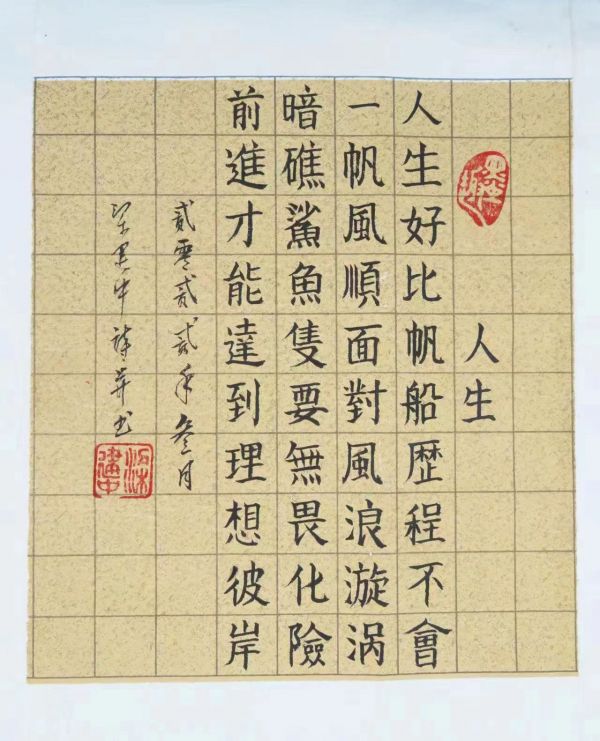 人生
人生好比帆船歷程不會
一帆風順面對風浪漩涡
暗礁鯊魚隻要無畏化險
前進才能達到理想彼岸
貳零貳貳年叁月
梁建中詩并书